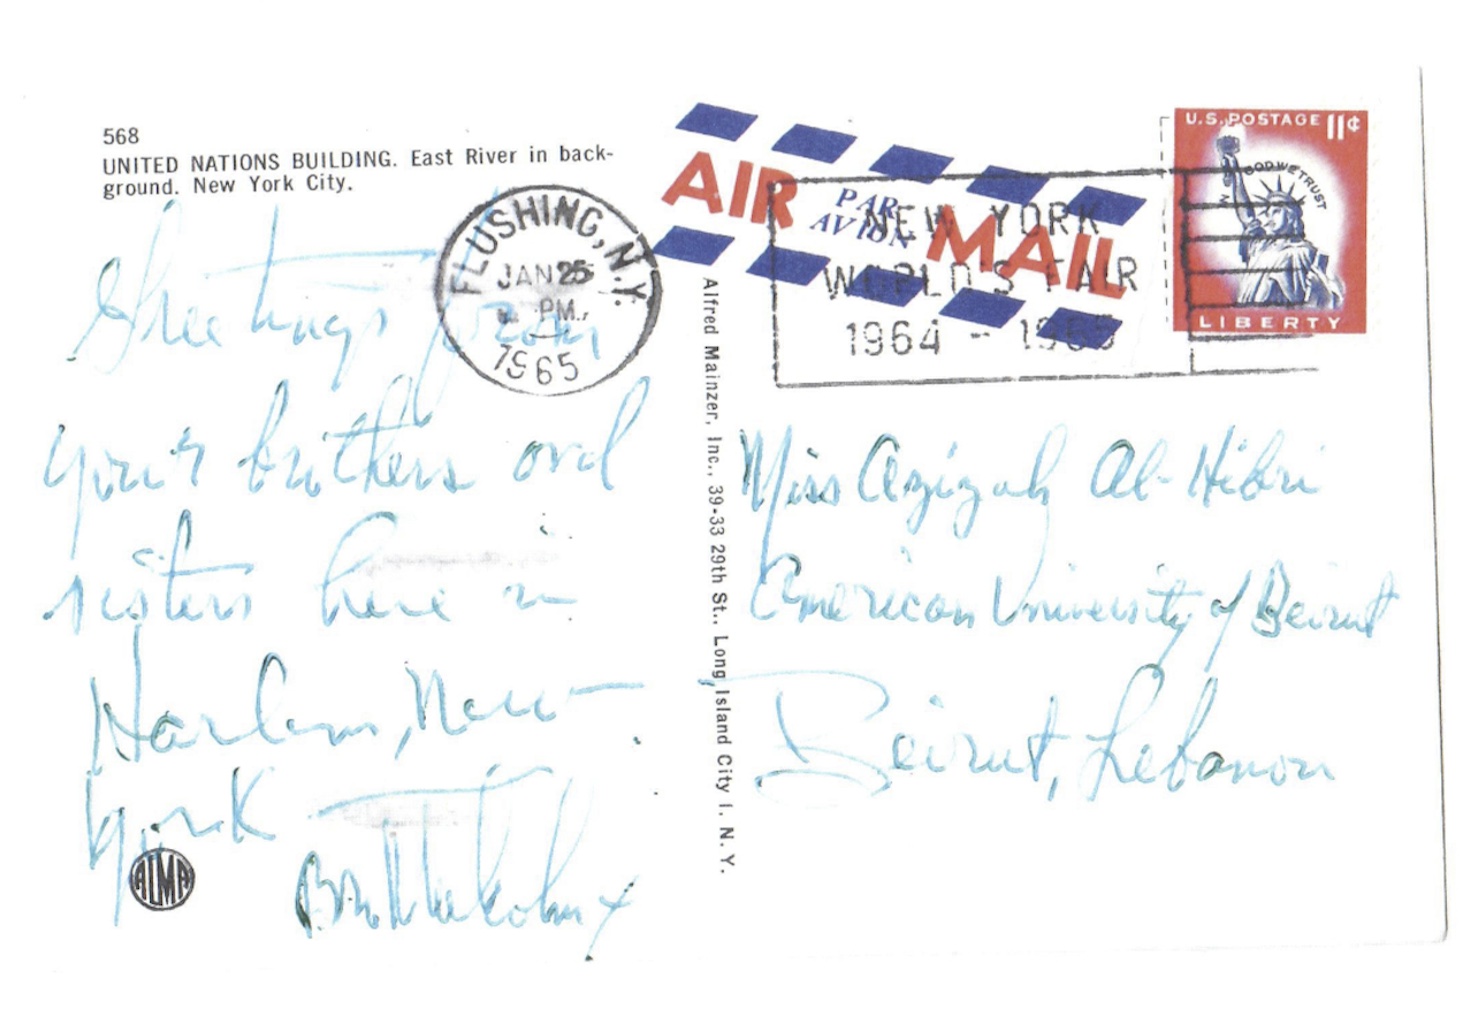 568
UNITED NATIONS BUILDING. East River in back-
ground. New York City.
Greetings from
your brothers and
sisters here in
Harlem, New
York
Bro Malcolm X
ALMA
FLUSHING, N.Y.
JAN 25
PM
1965
Alfred Mainzer, Inc., 39-33 29th St., Long Island City 1, N. Y.
AIR MAIL
PAR
AVION
NEW YORK
WORLD'S FAIR
1964 - 1965
U.S. POSTAGE 11¢
IN GOD WE TRUST
LIBERTY
Miss Azizah Al-Hibri
American University of Beirut
Beirut, Lebanon